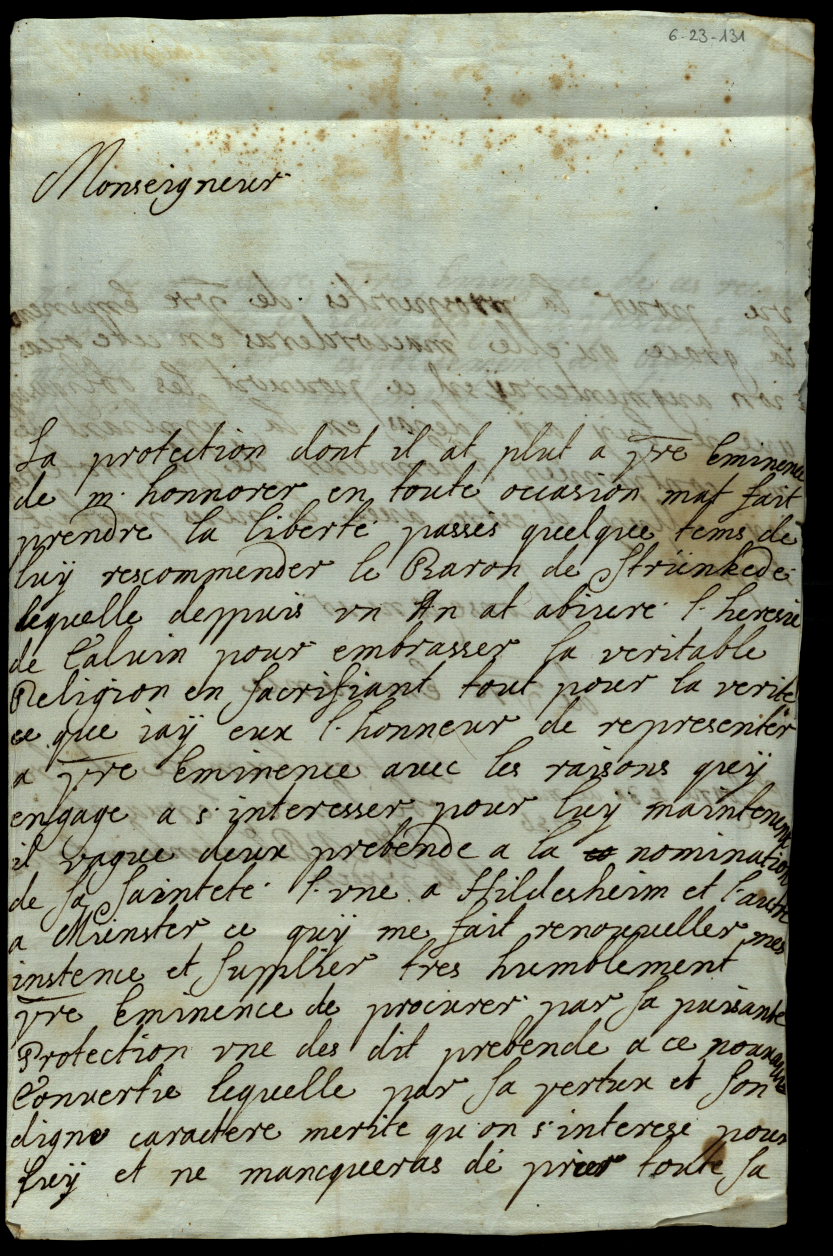 6-23-131
Monseigneur
La protection dont il at plut a vre Eminence
de m. honnorer en toute occasion mat fait
prendre la liberté passés quelque tems de
luÿ rescommender le Baron de Strünkede
lequelle deppuis vn An at abiuré l. heresie
de Caluin pour embrasser la veritable
Religion en sacrifiant tout pour la verité
ce que iaÿ eux l. honneur de representér
a vre Eminence auec les raisons queÿ
engage a s. interesser pour luy maintenent
il vaque deux prebende a la nomination
de sa Sainteté l. vne a Hildesheim et l. autre
a Münster ce quÿ me fait renouueller mes
instence et supplier tres humblement
vre Eminence de procurer par sa puissante
Protection vne des dit prebende a ce nouueau
Conuertie lequelle par sa vertux et son
digne caractere merite qu'on s'interese pour
luÿ et ne mancqueras de prier toute sa